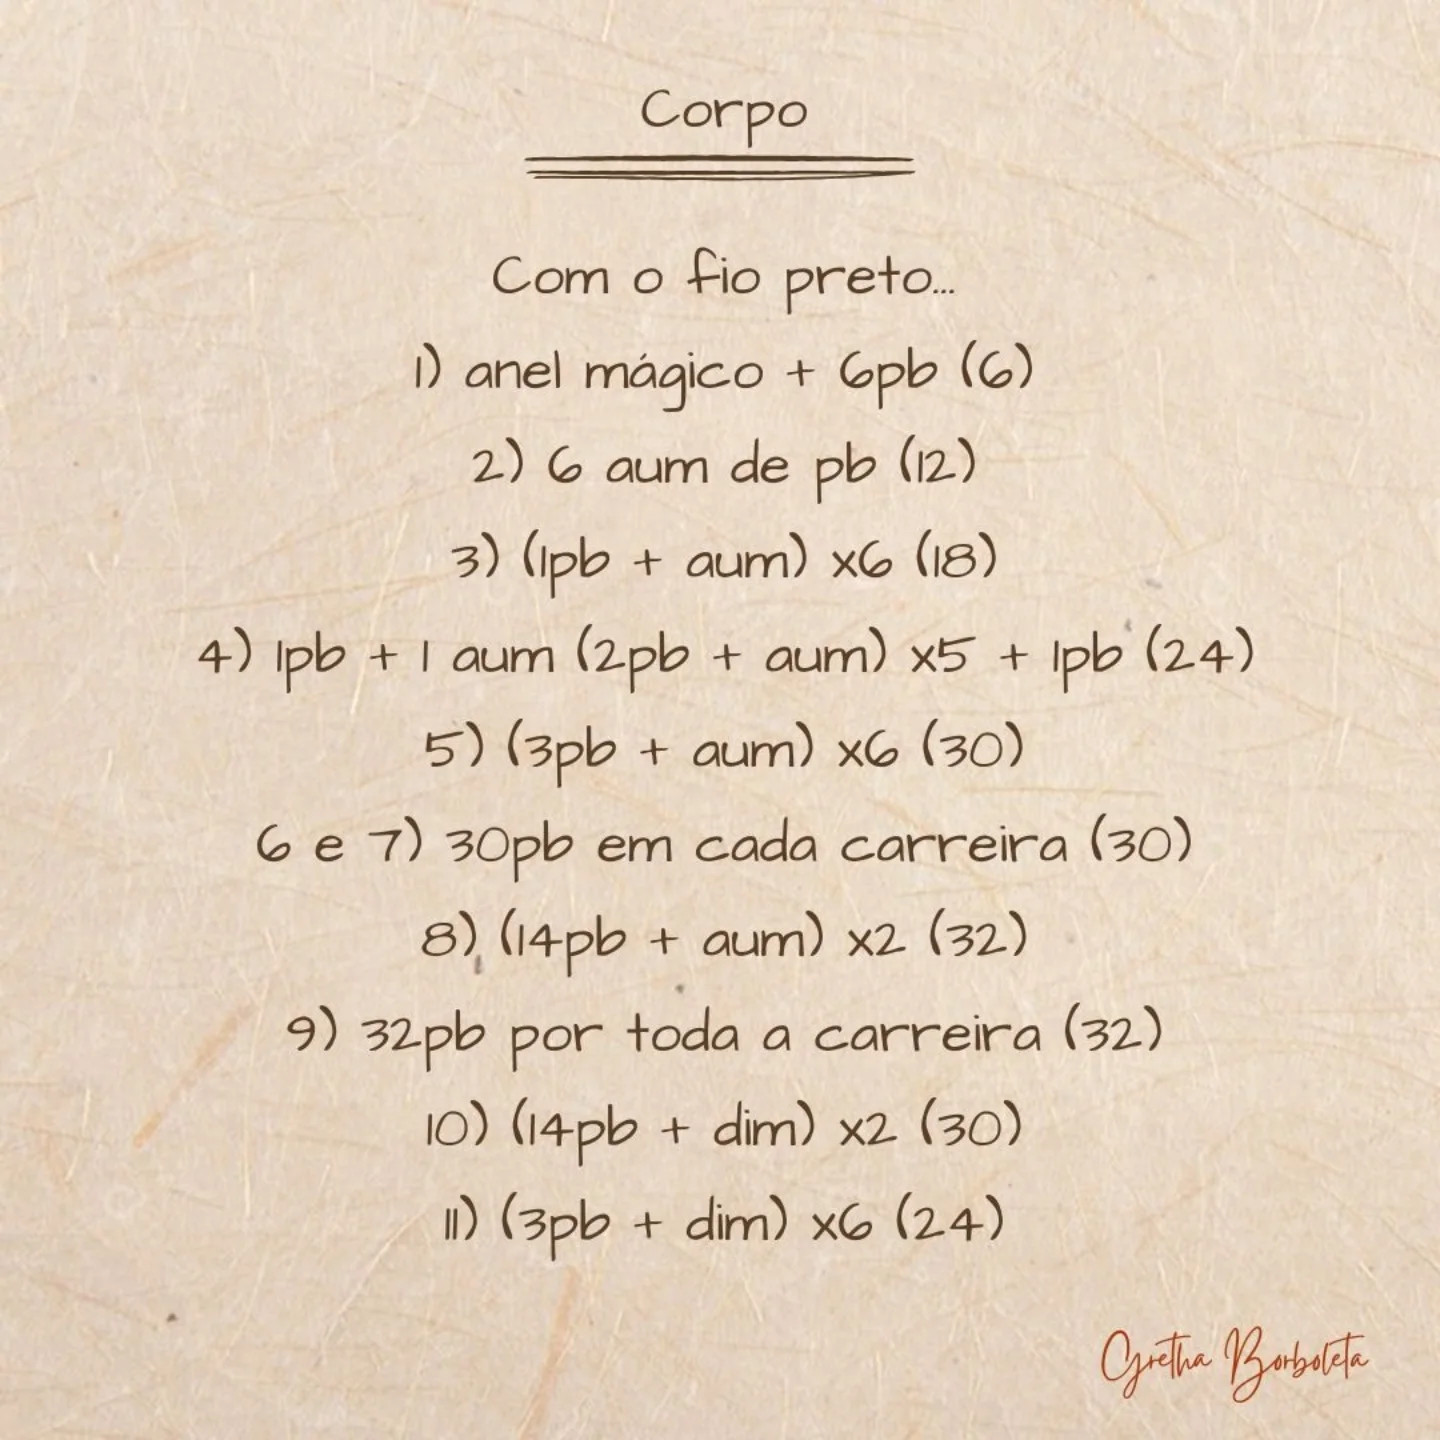 Corpo
Com o fio preto...
1) anel mágico + 6pb (6)
2) 6 aum de pb (12)
3) (1pb + aum) x6 (18)
4) 1pb + 1 aum (2pb + aum) x5 + 1pb (24)
5) (3pb + aum) x6 (30)
6 e 7) 30pb em cada carreira (30)
8) (14pb + aum) x2 (32)
9) 32pb por toda a carreira (32)
10) (14pb + dim) x2 (30)
11) (3pb + dim) x6 (24)
Gretha Borboleta